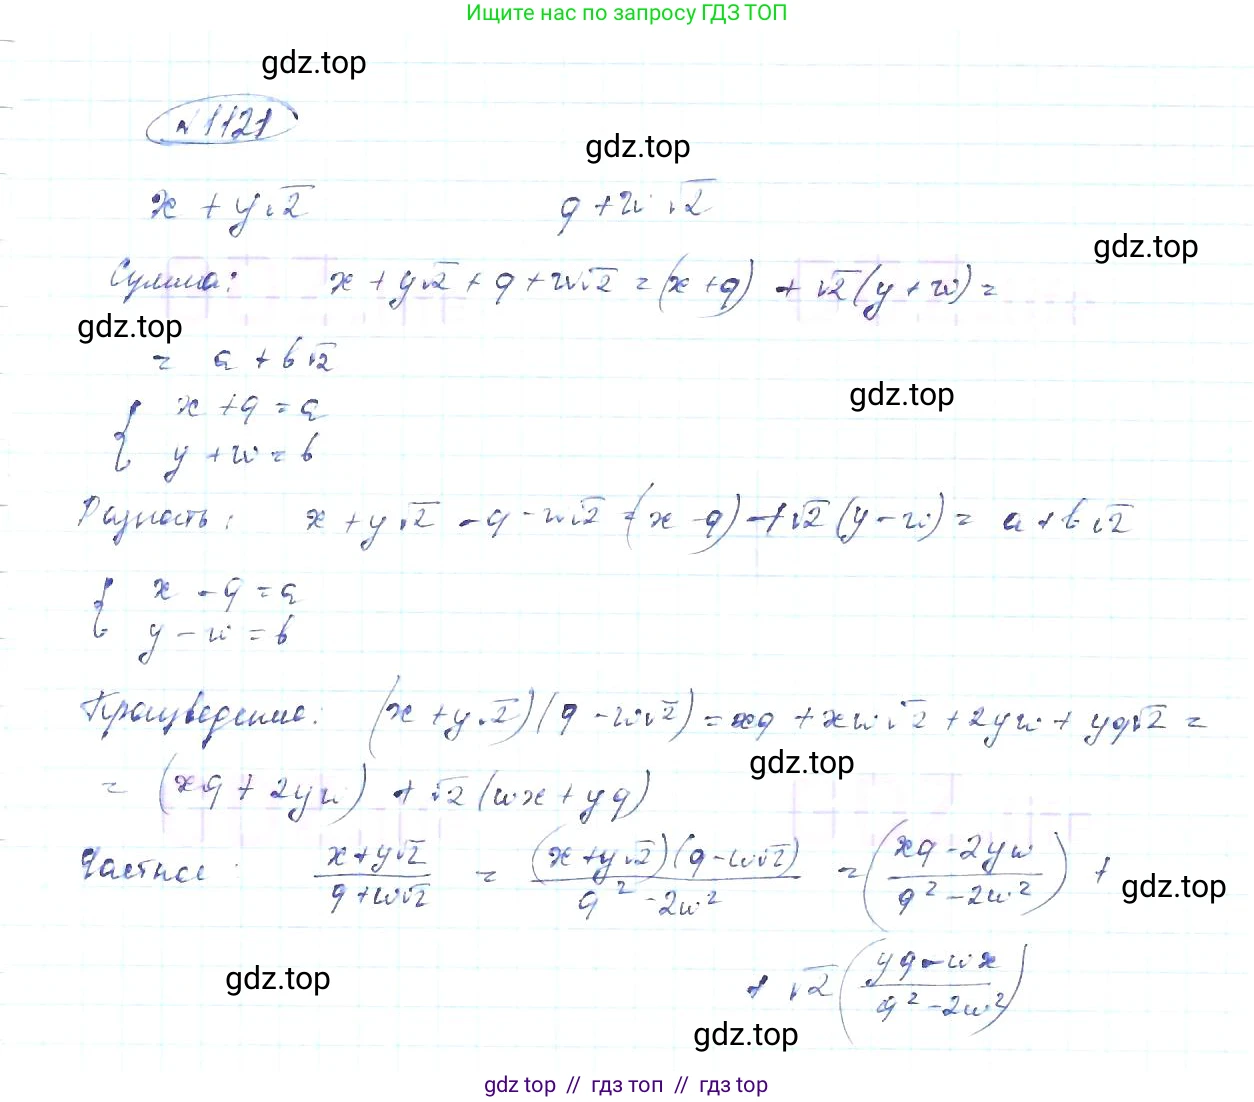 Ищите нас по запросу ГДЗ ТОП
gdz.top
№1121
gdz.top
x + y√2 q + w√2
gdz.top
Сумма: x + y√2 + q + w√2 = (x + q) + √2(y + w) =
gdz.top
= a + b√2
gdz.top
{ x + q = a
y + w = b
Разность: x + y√2 - q - w√2 = (x - q) + √2(y - w) = a + b√2
{ x - q = a
y - w = b
Произведение: (x + y√2)(q - w√2) = xq + xw√2 + 2yw + yq√2 =
gdz.top
= (xq + 2yw) + √2(wx + yq)
Частное: (x + y√2)/(q + w√2) = ((x + y√2)(q - w√2))/(q² - 2w²) = ((xq - 2yw)/(q² - 2w²)) +
gdz.top
+ √2((yq - wx)/(q² - 2w²))
gdz.top
gdz.top
gdz top // гдз топ // гдз top